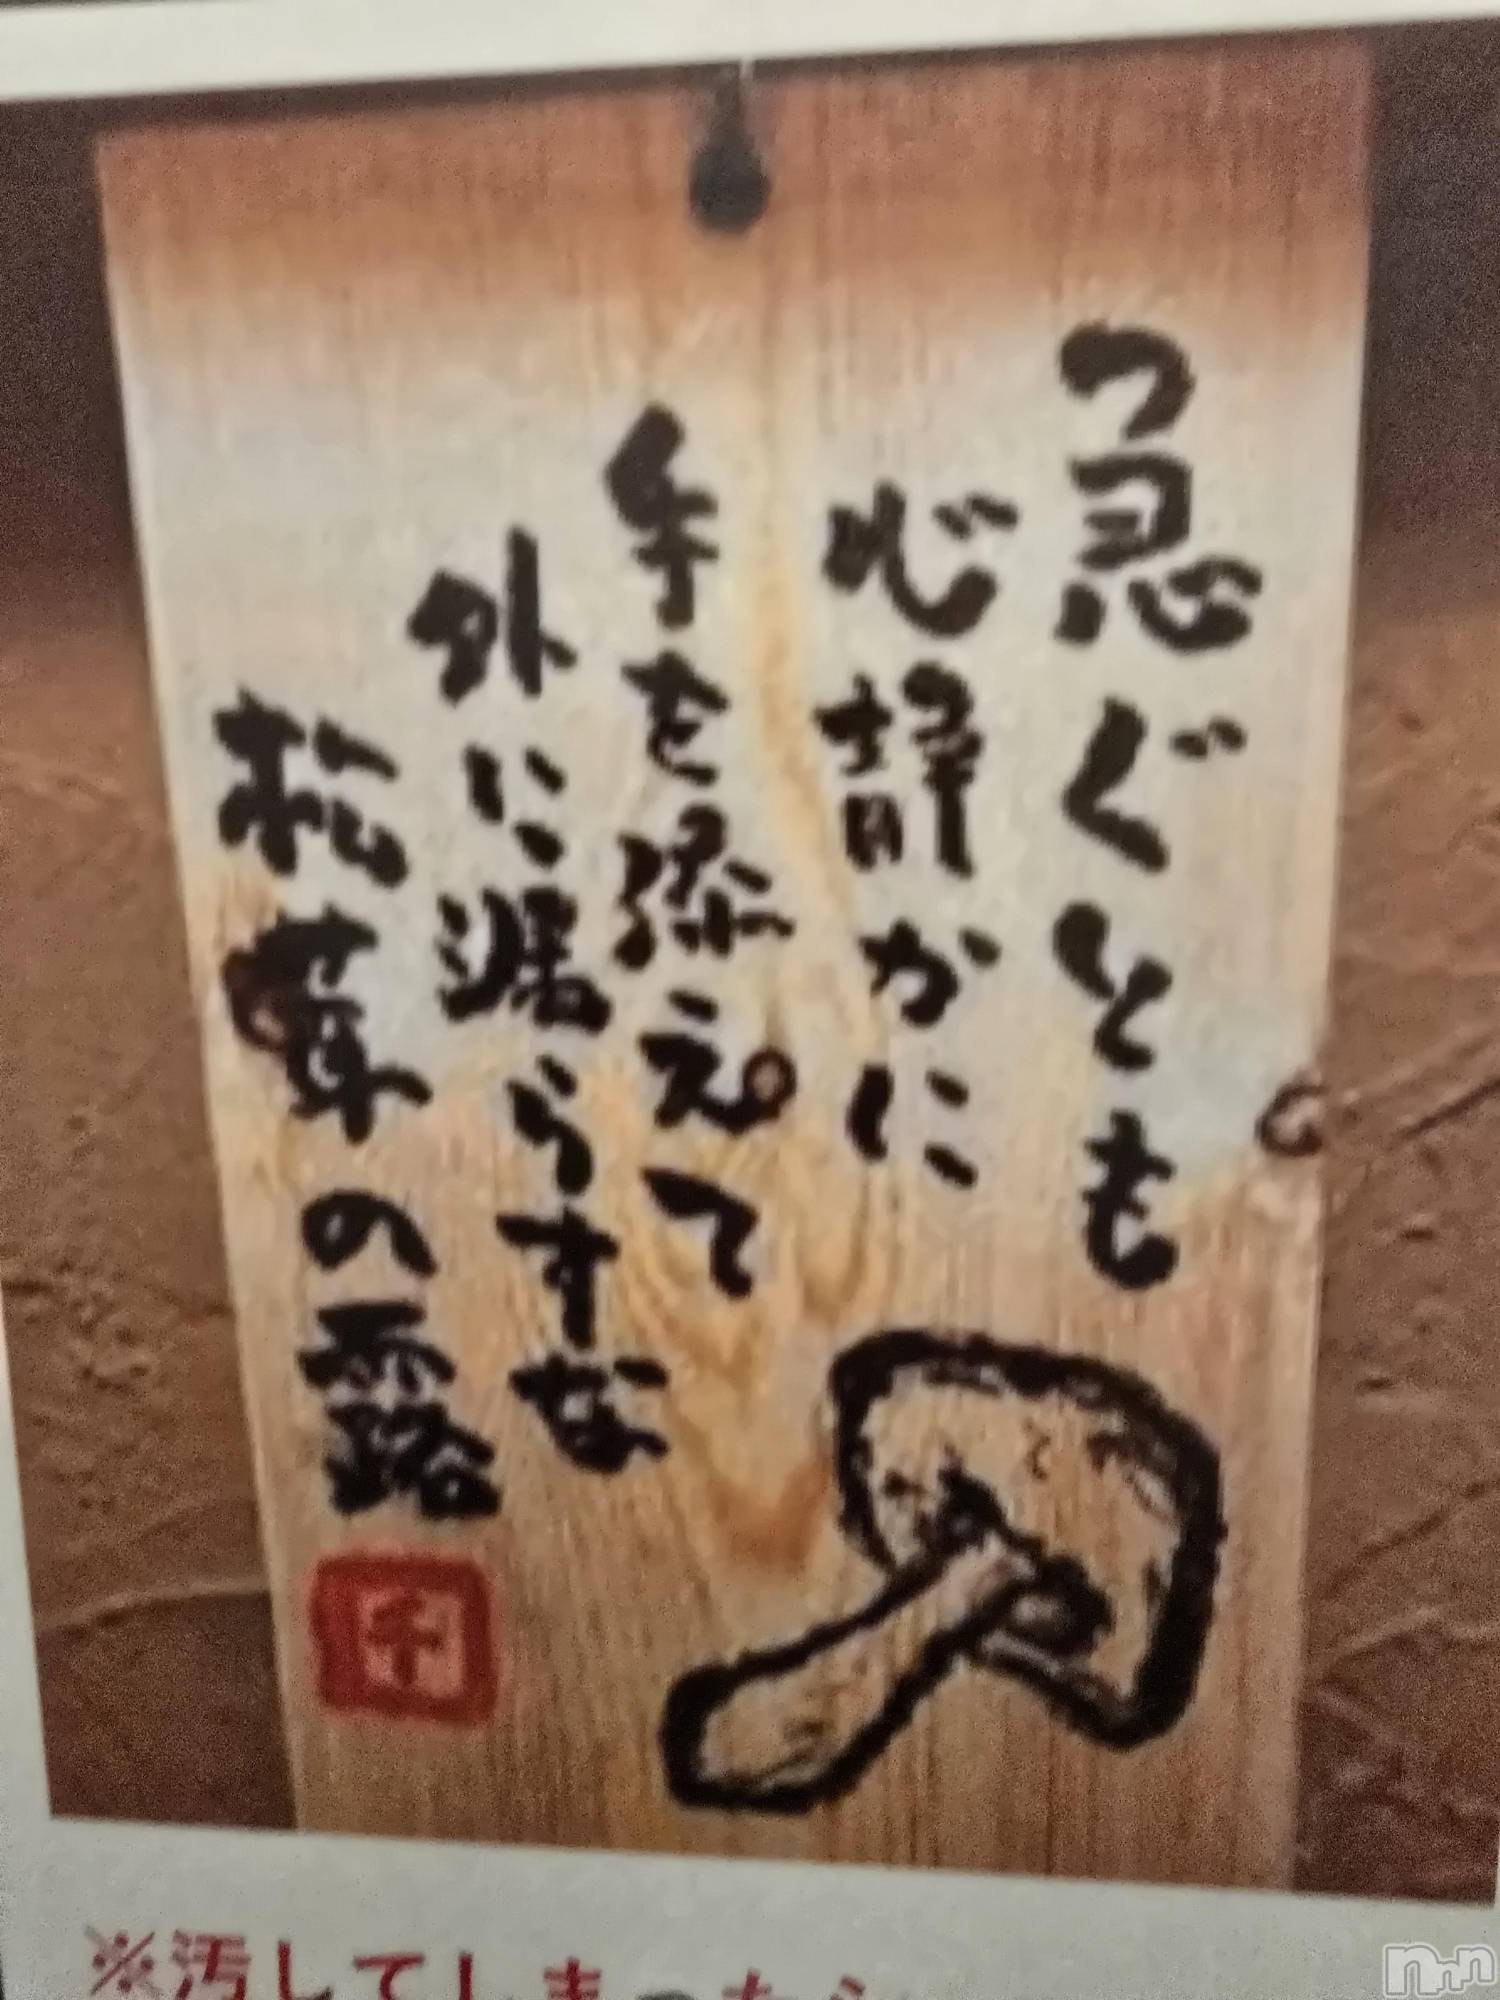 急ぐとも
心静かに
手を添えて
外に漏らすな
松茸の露
千
※汚してしまったら
nmn